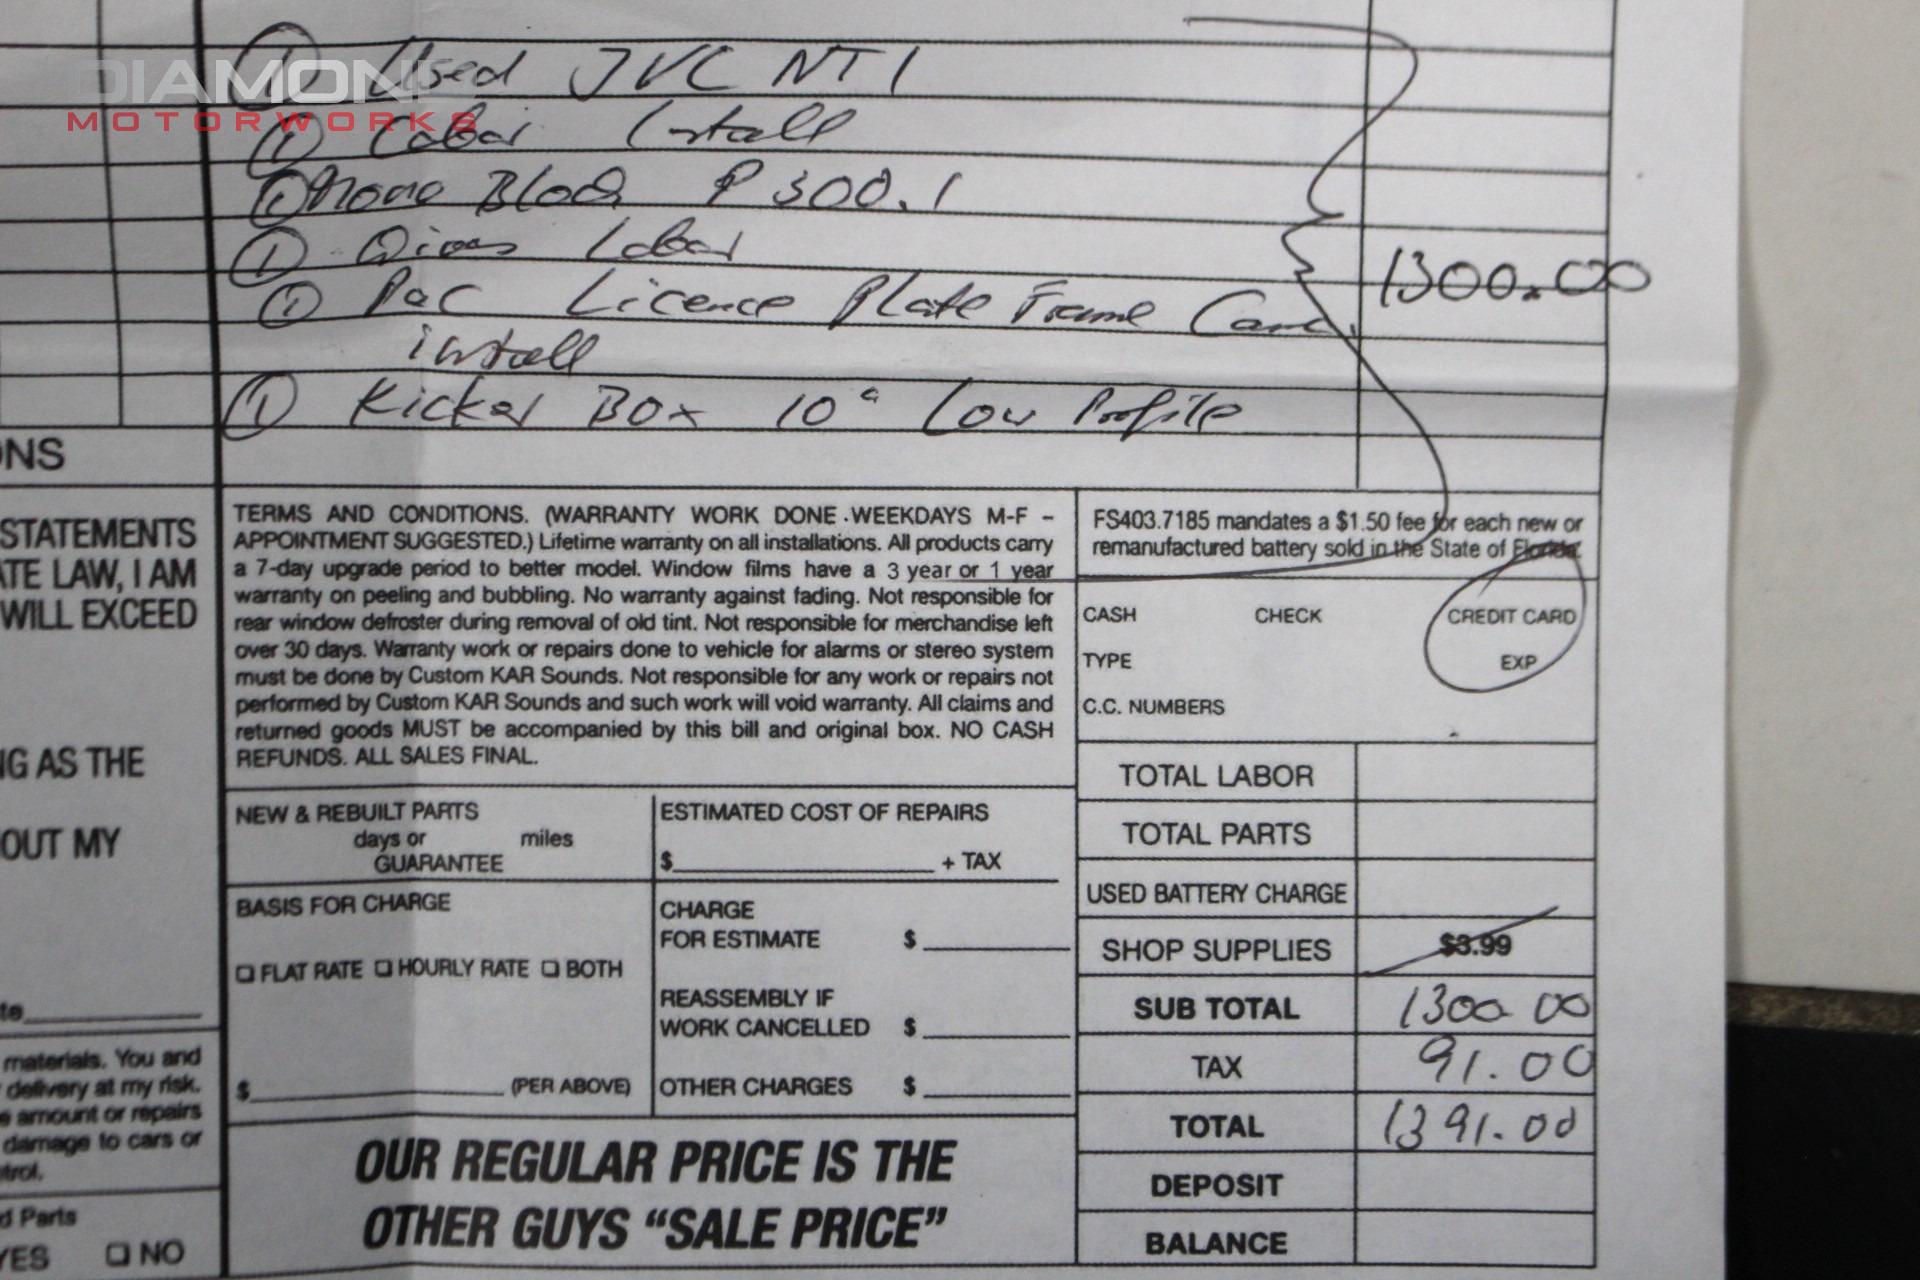 DIAMOND
MOTORWORKS
① Used JVC NT1
① Labor Install
① Mono Block P300.1
① Labor
① PaC Licence Plate Frame Cam.
install
① Kicker Box 10" Low Profile
1300.00
ONS
STATEMENTS
ATE LAW, I AM
WILL EXCEED
NG AS THE
OUT MY
te
materials. You and
delivery at my risk.
e amount or repairs
damage to cars or
trol.
d Parts
YES ☐ NO
TERMS AND CONDITIONS. (WARRANTY WORK DONE WEEKDAYS M-F –
APPOINTMENT SUGGESTED.) Lifetime warranty on all installations. All products carry
a 7-day upgrade period to better model. Window films have a 3 year or 1 year
warranty on peeling and bubbling. No warranty against fading. Not responsible for
rear window defroster during removal of old tint. Not responsible for merchandise left
over 30 days. Warranty work or repairs done to vehicle for alarms or stereo system
must be done by Custom KAR Sounds. Not responsible for any work or repairs not
performed by Custom KAR Sounds and such work will void warranty. All claims and
returned goods MUST be accompanied by this bill and original box. NO CASH
REFUNDS. ALL SALES FINAL.
FS403.7185 mandates a $1.50 fee for each new or
remanufactured battery sold in the State of Florida.
CASH CHECK CREDIT CARD
TYPE EXP
C.C. NUMBERS
NEW & REBUILT PARTS
days or miles
GUARANTEE
ESTIMATED COST OF REPAIRS
$ + TAX
BASIS FOR CHARGE
☐ FLAT RATE ☐ HOURLY RATE ☐ BOTH
$ (PER ABOVE)
CHARGE
FOR ESTIMATE $
REASSEMBLY IF
WORK CANCELLED $
OTHER CHARGES $
TOTAL LABOR
TOTAL PARTS
USED BATTERY CHARGE
SHOP SUPPLIES $3.99
SUB TOTAL 1300.00
TAX 91.00
TOTAL 1391.00
DEPOSIT
BALANCE
OUR REGULAR PRICE IS THE
OTHER GUYS “SALE PRICE”